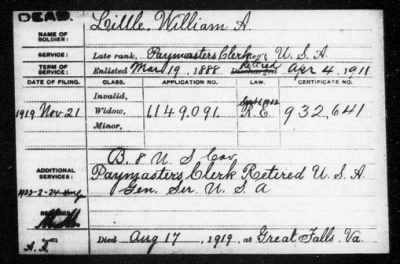 DEAD.
NAME OF SOLDIER: Little. William A.
SERVICE: Late rank, Paymasters Clerk U. S. A
TERM OF SERVICE: Enlisted Mar 19, 1888 Retired Apr 4, 1911
DATE OF FILING. CLASS. APPLICATION NO. LAW. CERTIFICATE NO.
Invalid,
1919 Nov 21 Widow, 1149,091. R.E. 932,641
Minor,
ADDITIONAL SERVICES: B. 8 U S Cav
Paymasters Clerk Retired U. S. A
Gen. Ser. U. S. A
Died Aug 17, 1919, at Great Falls. Va.